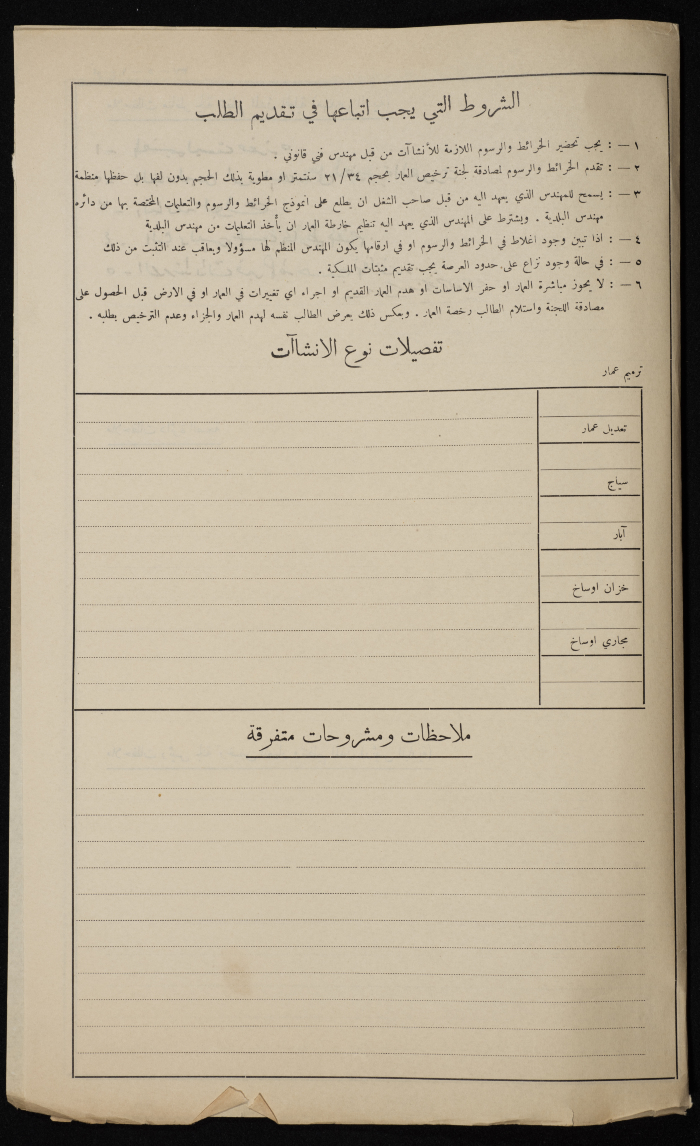 الشروط التي يجب اتباعها في تقديم الطلب
١ — : يجب تحضير الخرائط والرسوم اللازمة للأنشاآت من قبل مهندس فني قانوني .
٢ — : تقدم الخرائط والرسوم لمصادقة لجنة ترخيص العمار بحجم ٢١/٣٤ سنتمتر او مطوية بذلك الحجم بدون لفها بل حفظها منظمة
٣ — : يسمح للمهندس الذي يعهد اليه من قبل صاحب الشغل ان يطلع على انموذج الخرائط والرسوم والتعليمات المختصة بها من دائرة
مهندس البلدية . ويشترط على المهندس الذي يعهد اليه تنظيم خارطة العمار ان يأخذ التعليمات من مهندس البلدية
٤ — : اذا تبين وجود اغلاط في الخرائط والرسوم او في ارقامها يكون المهندس المنظم لها مسؤولا ويعاقب عند التثبت من ذلك
٥ — : في حالة وجود نزاع على حدود العرصة يجب تقديم مثبتات الملكية .
٦ — : لا يجوز مباشرة العمار او حفر الاساسات او هدم العمار القديم او اجراء اي تغييرات في العمار او في الارض قبل الحصول على
مصادقة اللجنة واستلام الطالب رخصة العمار . وبعكس ذلك يعرض الطالب نفسه لهدم العمار والجزاء وعدم الترخيص بطلبه .
تفصيلات نوع الانشاآت
ترميم عمار
تعديل عمار
سياج
آبار
خزان اوساخ
مجاري اوساخ
ملاحظات ومشروحات متفرقة